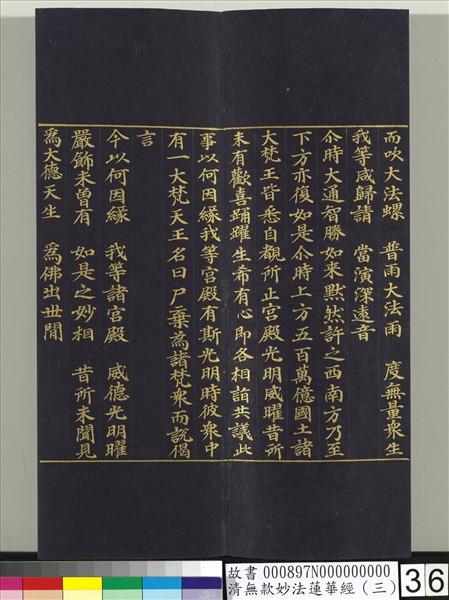 而吹大法螺　普雨大法雨　度無量衆生
我等咸歸請　當演深遠音
尒時大通智勝如來默然許之西南方乃至
下方亦復如是尒時上方五百萬億國土諸
大梵王皆悉自覩所止宮殿光明威曜昔所
未有歡喜踊躍生希有心即各相詣共議此
事以何因緣我等宮殿有斯光明時彼衆中
有一大梵天王名曰尸棄為諸梵衆而說偈
言
今以何因緣　我等諸宮殿　威德光明曜
嚴飾未曾有　如是之妙相　昔所未聞見
為大德天生　為佛出世間
故書 000897N000000000
清無款妙法蓮華經（三）
36